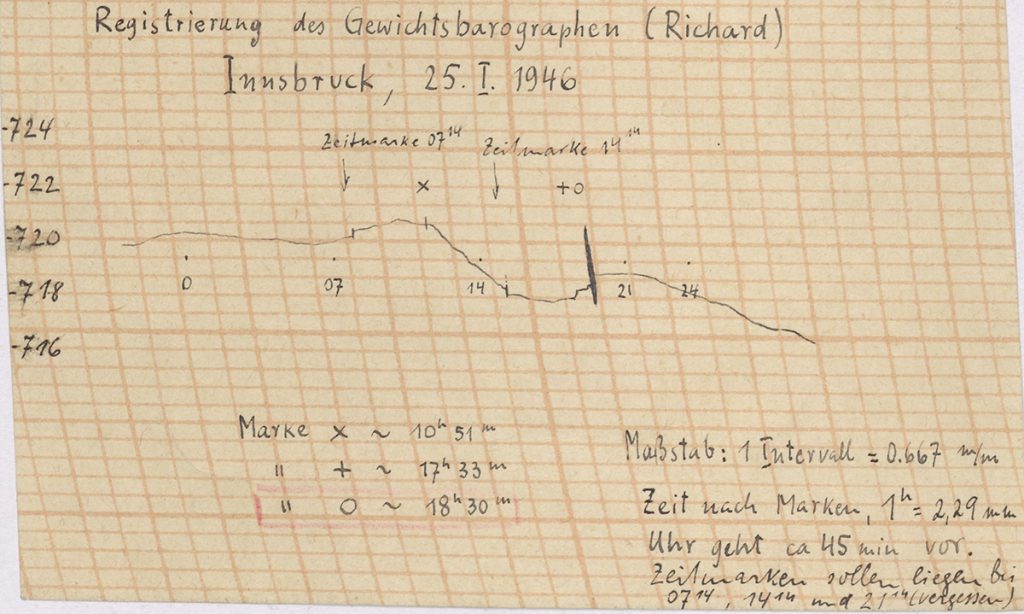 Registrierung des Gewichtsbarographen (Richard)
Innsbruck, 25. I. 1946
-724
Zeitmarke 07¹⁴ Zeitmarke 14¹⁴
-722 × +0
-720
0 07 14 21 24
-718
-716
Marke × ~ 10ʰ 51ᵐ
" + ~ 17ʰ 33ᵐ
" O ~ 18ʰ 30ᵐ
Maßstab: 1 Intervall = 0.667 m/m
Zeit nach Marken, 1ʰ = 2,29 mm
Uhr geht ca 45 min vor.
Zeitmarken sollen liegen bei
07¹⁴, 14¹⁴ und 21¹⁴ (vergessen)